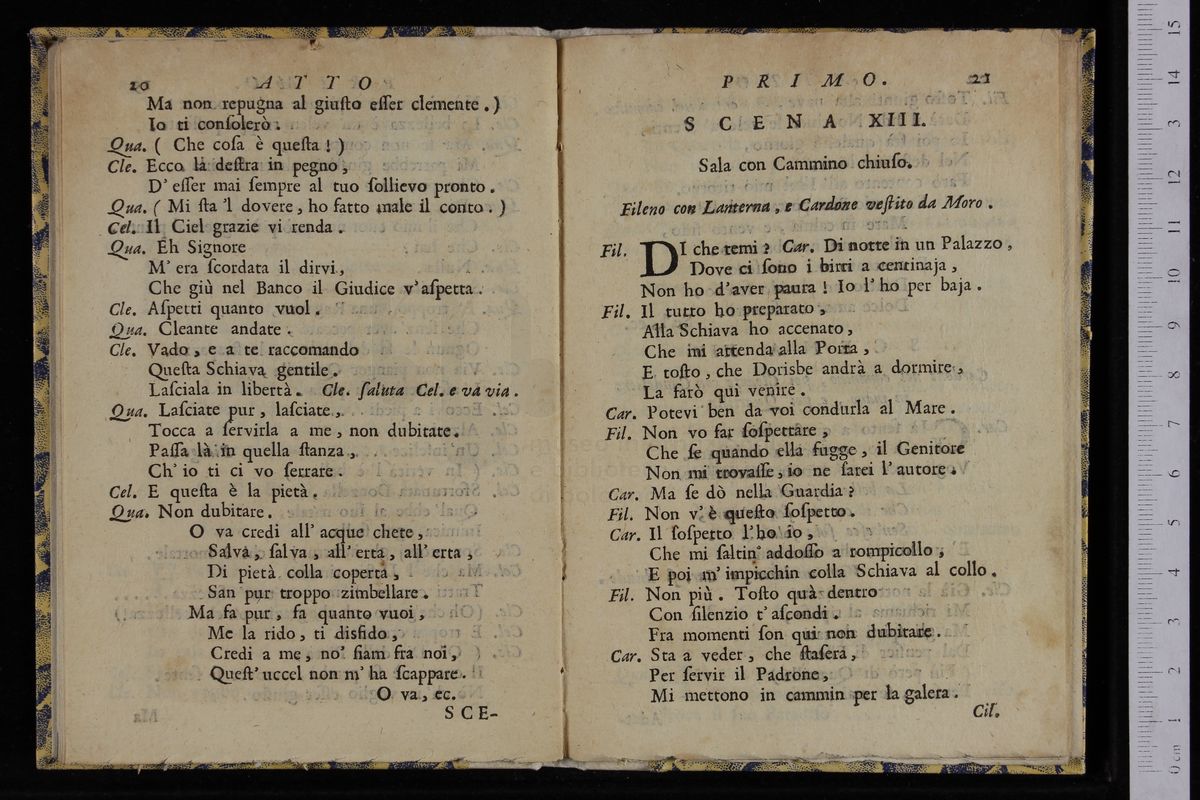 20 A T T O
Ma non repugna al giuſto eſſer clemente.)
Io ti conſolerò.
Qua. ( Che coſa è queſta ! )
Cle. Ecco là deſtra in pegno,
D' eſſer mai ſempre al tuo ſollievo pronto.
Qua. ( Mi ſta 'l dovere, ho fatto male il conto. )
Cel. Il Ciel grazie vi renda.
Qua. Eh Signore
M' era ſcordata il dirvi,
Che giù nel Banco il Giudice v' aſpetta.
Cle. Aſpetti quanto vuol.
Qua. Cleante andate.
Cle. Vado, e a te raccomando
Queſta Schiava gentile.
Laſciala in libertà. Cle. ſaluta Cel. e va via.
Qua. Laſciate pur, laſciate,
Tocca a ſervirla a me, non dubitate.
Paſſa là in quella ſtanza,
Ch' io ti ci vo ſerrare.
Cel. E queſta è la pietà.
Qua. Non dubitare.
O va credi all' acque chete,
Salva, ſalva, all' erta, all' erta,
Di pietà colla coperta,
San pur troppo zimbellare.
Ma fa pur, fa quanto vuoi,
Me la rido, ti disfido,
Credi a me, no' ſiam fra noi,
Queſt' uccel non m' ha ſcappare.
O va, ec.
SCE-
P R I M O. 21
S C E N A XIII.
Sala con Cammino chiuſo.
Fileno con Lanterna, e Cardone veſtito da Moro.
Fil. DI che temi? Car. Di notte in un Palazzo,
Dove ci ſono i birri a centinaja,
Non ho d'aver paura! Io l' ho per baja.
Fil. Il tutto ho preparato,
Alla Schiava ho accenato,
Che mi attenda alla Porta,
E toſto, che Dorisbe andrà a dormire,
La farò qui venire.
Car. Potevi ben da voi condurla al Mare.
Fil. Non vo far ſoſpettare,
Che ſe quando ella fugge, il Genitore
Non mi trovaſſe, io ne ſarei l' autore.
Car. Ma ſe dò nella Guardia?
Fil. Non v' è queſto ſoſpetto.
Car. Il ſoſpetto l'ho io,
Che mi ſaltin' addoſſo a rompicollo,
E poi m' impicchin colla Schiava al collo.
Fil. Non più. Toſto quà dentro
Con ſilenzio t' aſcondi.
Fra momenti ſon qui non dubitare.
Car. Sta a veder, che ſtaſera,
Per ſervir il Padrone,
Mi mettono in cammin per la galera.
Cil.